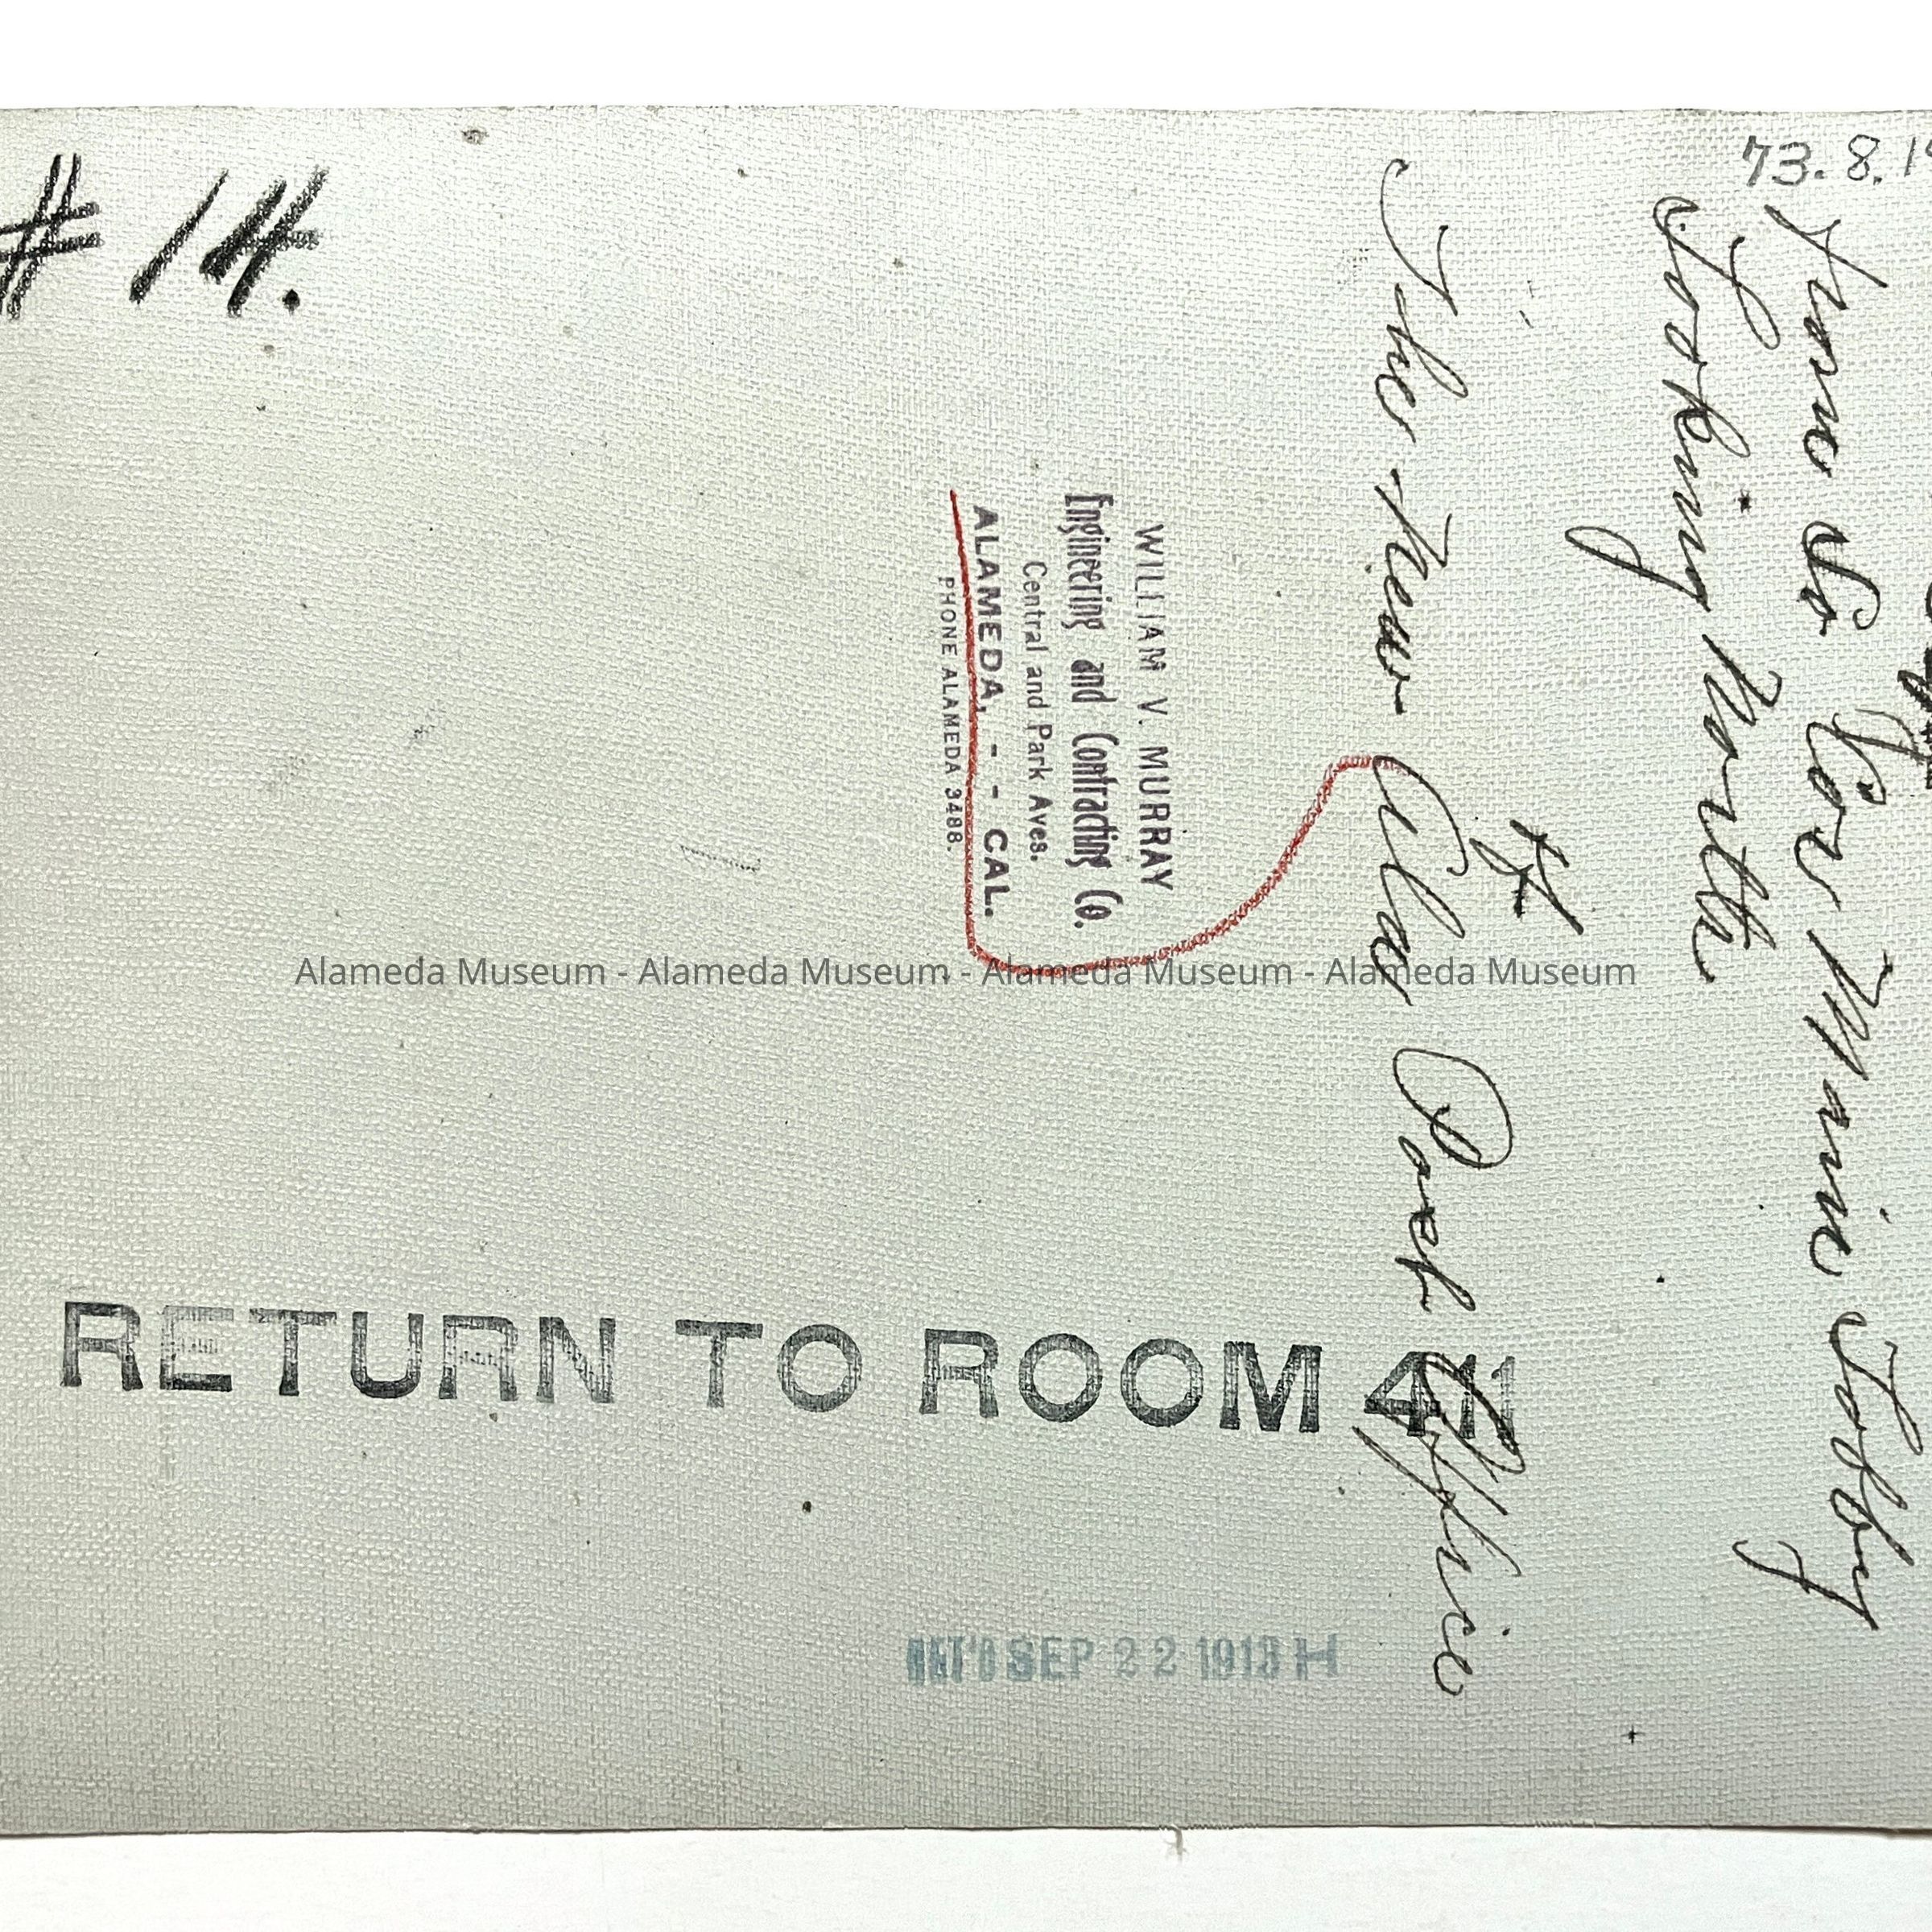 # 14.
73.8.1
From So Cor Main Lobby
Looking North
The New Ala Post Office
WILLIAM V. MURRAY
Engineering and Contracting Co.
Central and Park Aves.
ALAMEDA, - - CAL.
PHONE ALAMEDA 3488.
RETURN TO ROOM 411
SEP 22 1913 H
Alameda Museum - Alameda Museum - Alameda Museum - Alameda Museum